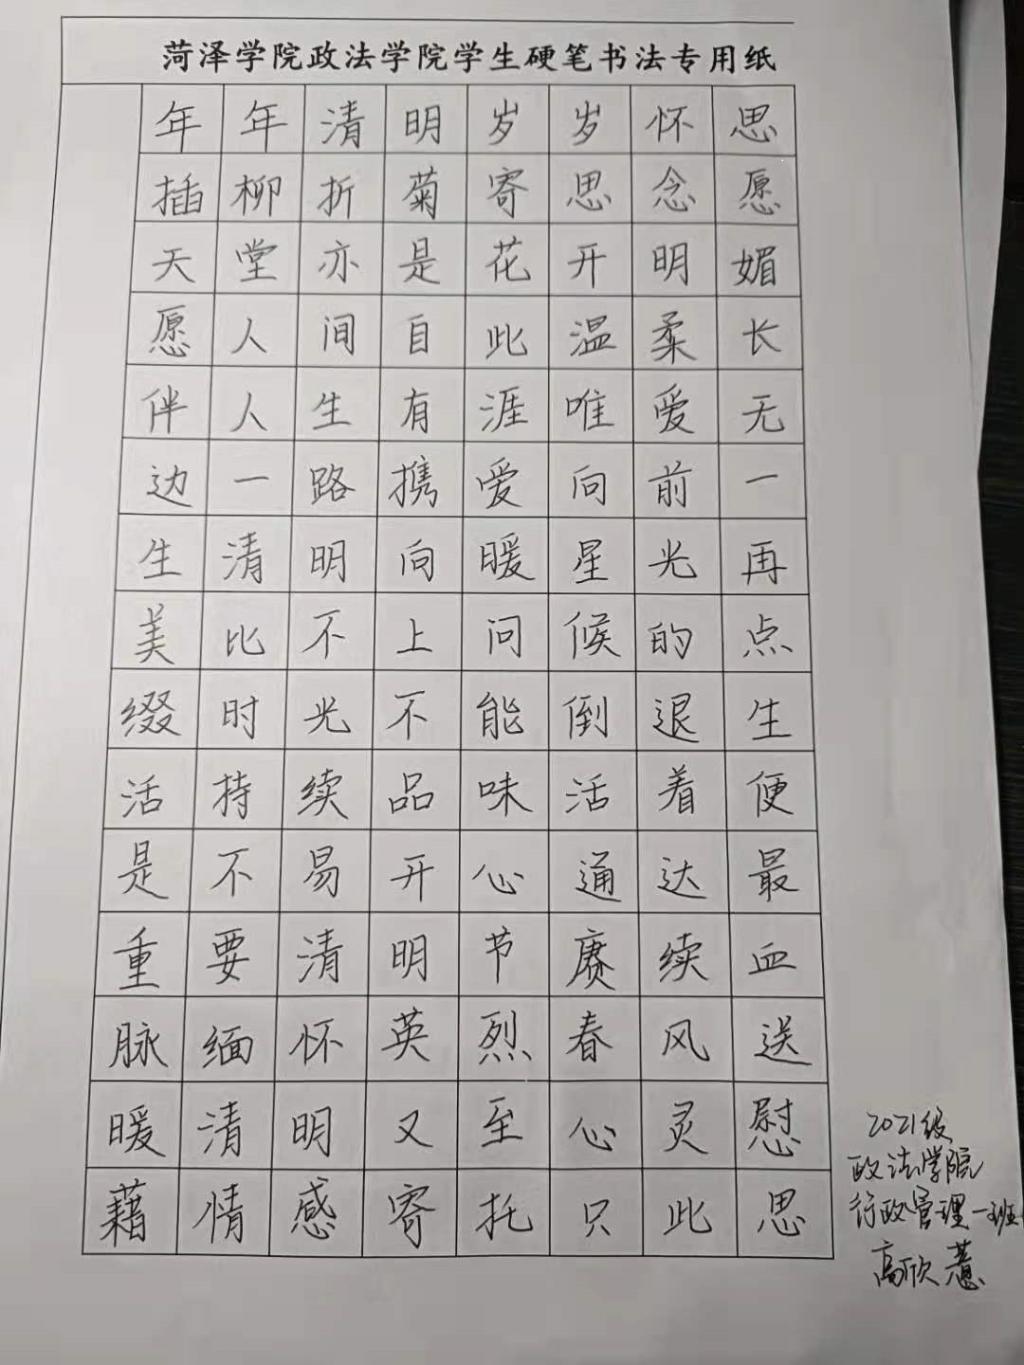 菏泽学院政法学院学生硬笔书法专用纸
年年清明岁岁怀思
插柳折菊寄思念愿
天堂亦是花开明媚
愿人间自此温柔长
伴人生有涯唯爱无
边一路携爱向前一
生清明向暖星光再
美比不上问候的点
缀时光不能倒退生
活持续品味活着便
是不易开心通达最
重要清明节赓续血
脉缅怀英烈春风送
暖清明又至心灵慰
藉情感寄托只此思
2021级
政法学院
行政管理一班
高欣薏